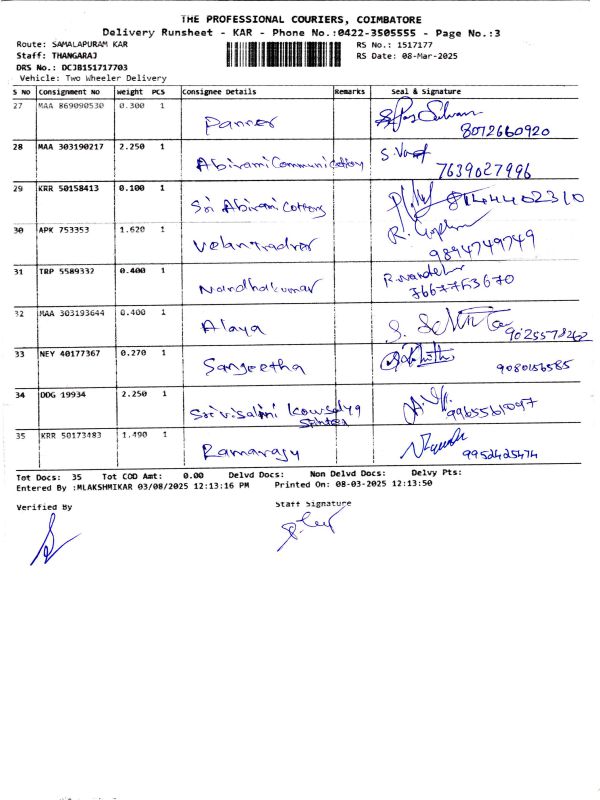 THE PROFESSIONAL COURIERS, COIMBATORE
Delivery Runsheet - KAR - Phone No.:0422-3505555 - Page No.:3
Route: SAMALAPURAM KAR
RS No.: 1517177
Staff: THANGARAJ
RS Date: 08-Mar-2025
DRS No.: DCJB151717703
Vehicle: Two Wheeler Delivery
S No Consignment No Weight PCS Consignee Details Remarks Seal & Signature
27 MAA 869090530 0.300 1
Panner
8072660920
28 MAA 303190217 2.250 1
Abirami Communication
7639027996
29 KRR 50158413 0.100 1
Sri Abirami Cottons
30 APK 753353 1.620 1
Velan Traders
9894749749
31 TRP 5589332 0.400 1
Nandhakumar
7667753670
32 MAA 303193644 0.400 1
Alaya
9025578262
33 NEY 40177367 0.270 1
Sangeetha
9080156585
34 DDG 19934 2.250 1
Sri Visalini Kowsalya
9965561097
35 KRR 50173483 1.490 1
Ramaraju
9952425474
Tot Docs: 35 Tot COD Amt: 0.00 Delvd Docs: Non Delvd Docs: Delvy Pts:
Entered By :MLAKSHMIKAR 03/08/2025 12:13:16 PM Printed On: 08-03-2025 12:13:50
Verified By
Staff Signature